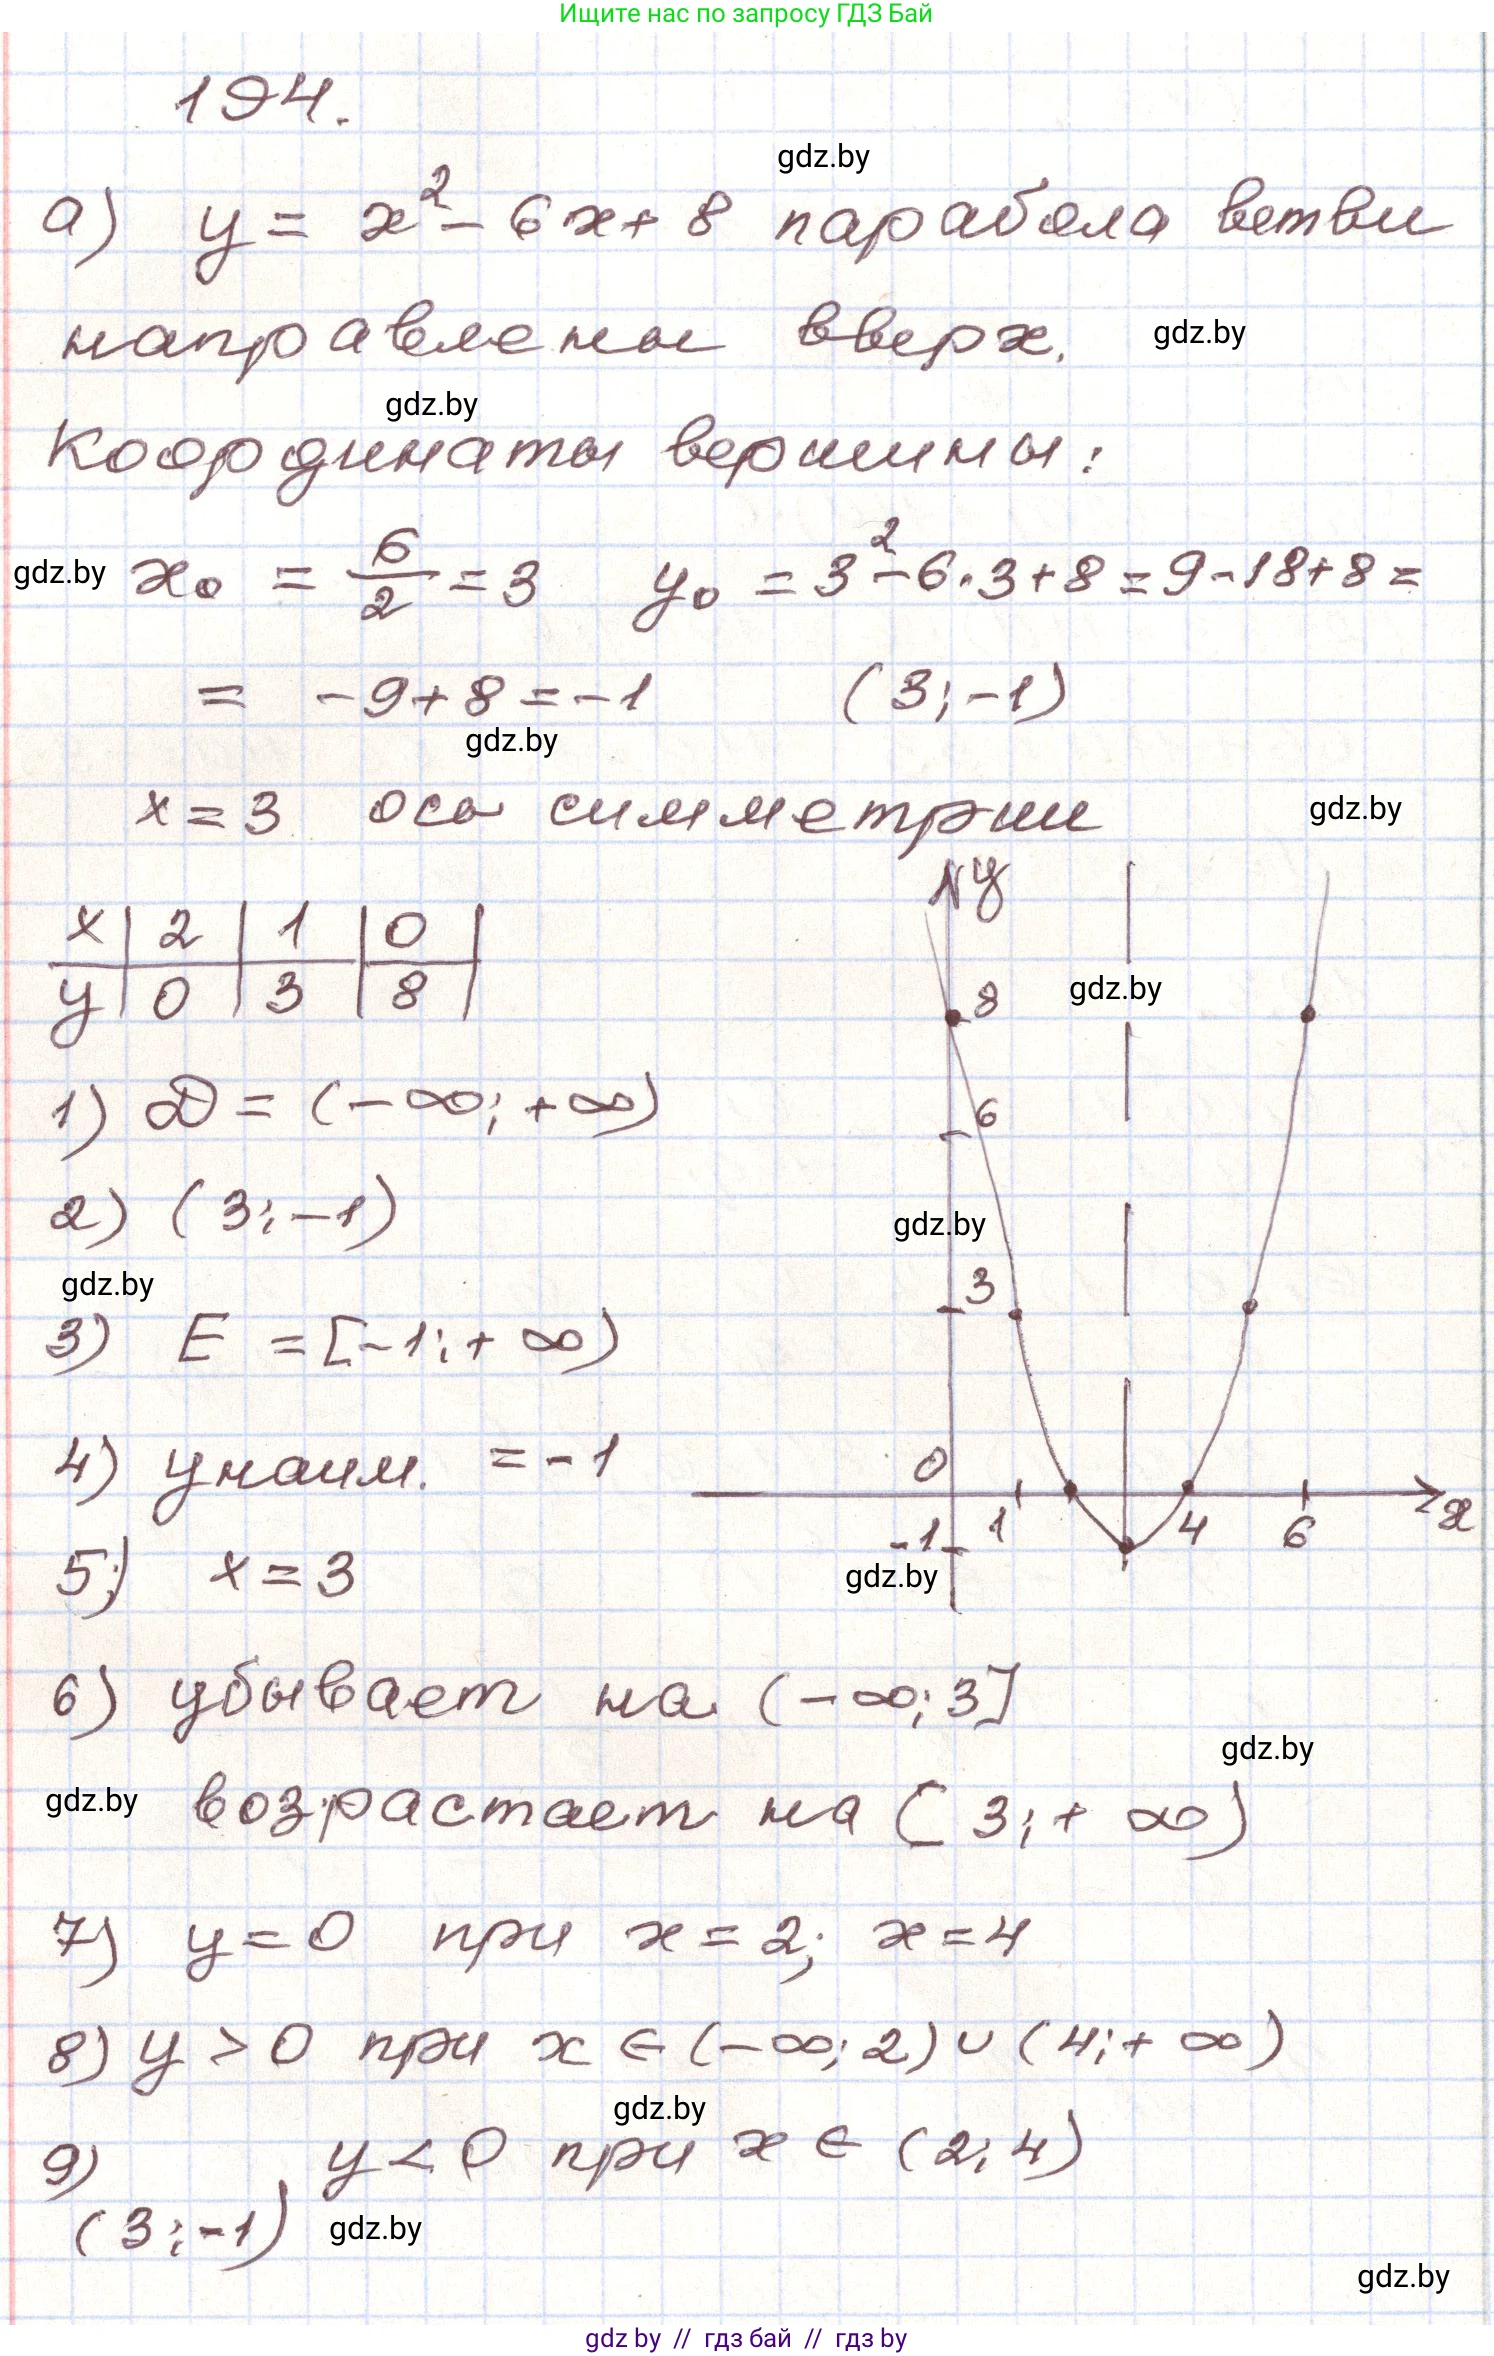 Ищите нас по запросу ГДЗ Бай
194.
gdz.by
а) y = x² - 6x + 8 парабола ветви
направлены вверх.
gdz.by
gdz.by
Координаты вершины:
gdz.by
x₀ = 6/2 = 3 y₀ = 3² - 6·3 + 8 = 9 - 18 + 8 =
= -9 + 8 = -1 (3; -1)
gdz.by
x = 3 ось симметрии
gdz.by
x | 2 | 1 | 0 |
y | 0 | 3 | 8 |
y
8
gdz.by
6
3
0
1
4
6
x
-1
gdz.by
gdz.by
1) D = (-∞; +∞)
2) (3; -1)
gdz.by
3) E = [-1; +∞)
4) y наим. = -1
5) x = 3
6) убывает на (-∞; 3]
gdz.by
gdz.by
возрастает на [3; +∞)
7) y = 0 при x = 2; x = 4
8) y > 0 при x ∈ (-∞; 2) ∪ (4; +∞)
gdz.by
y < 0 при x ∈ (2; 4)
9)
(3; -1)
gdz.by
gdz.by
gdz by // гдз бай // гдз by